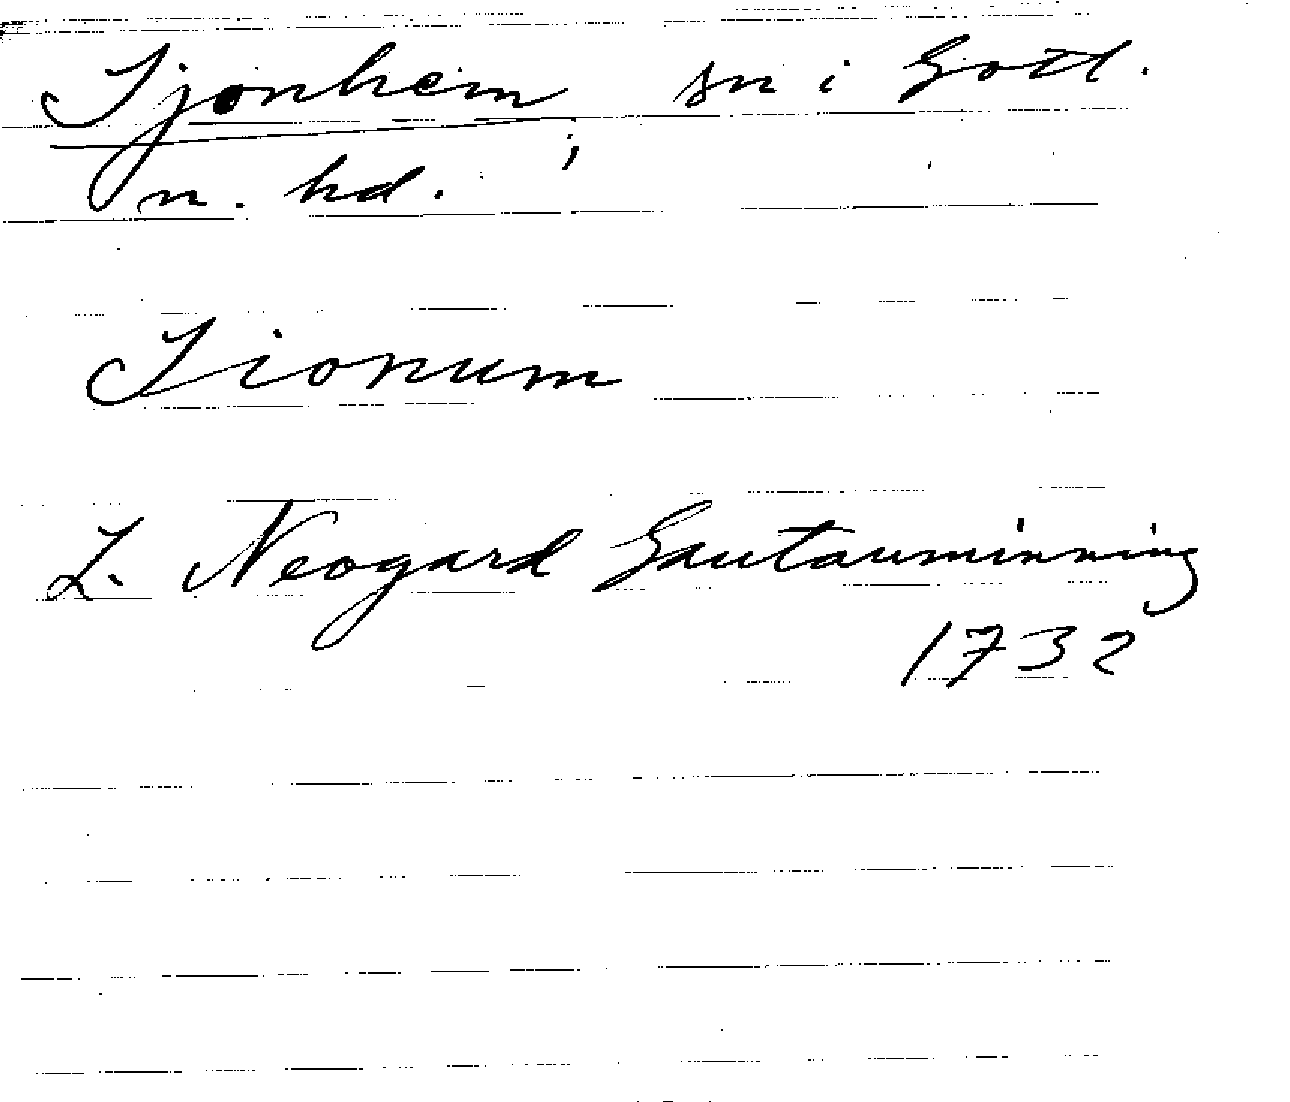 Tjonhem sn i Gotl.
n. hd.
Tionum
L. Neogard Gautauminning
1732